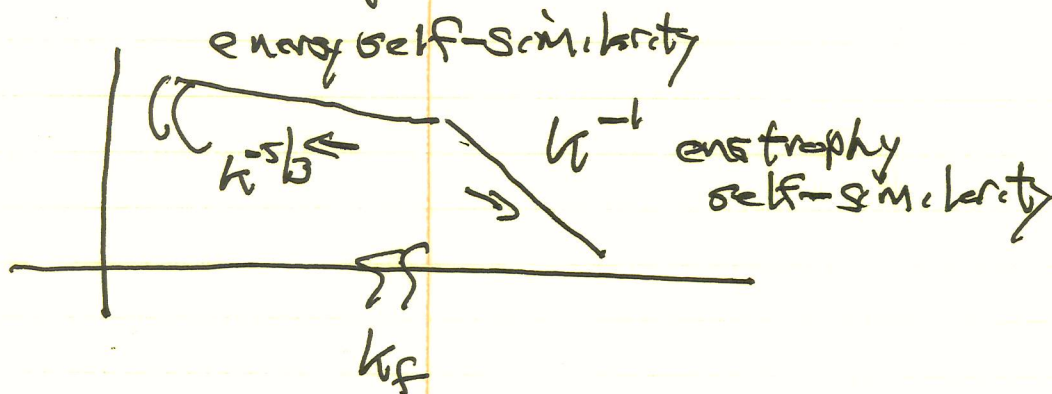 energy self-similarity
k^{-5/3}
k^{-1} enstrophy
self-similarity
k_f